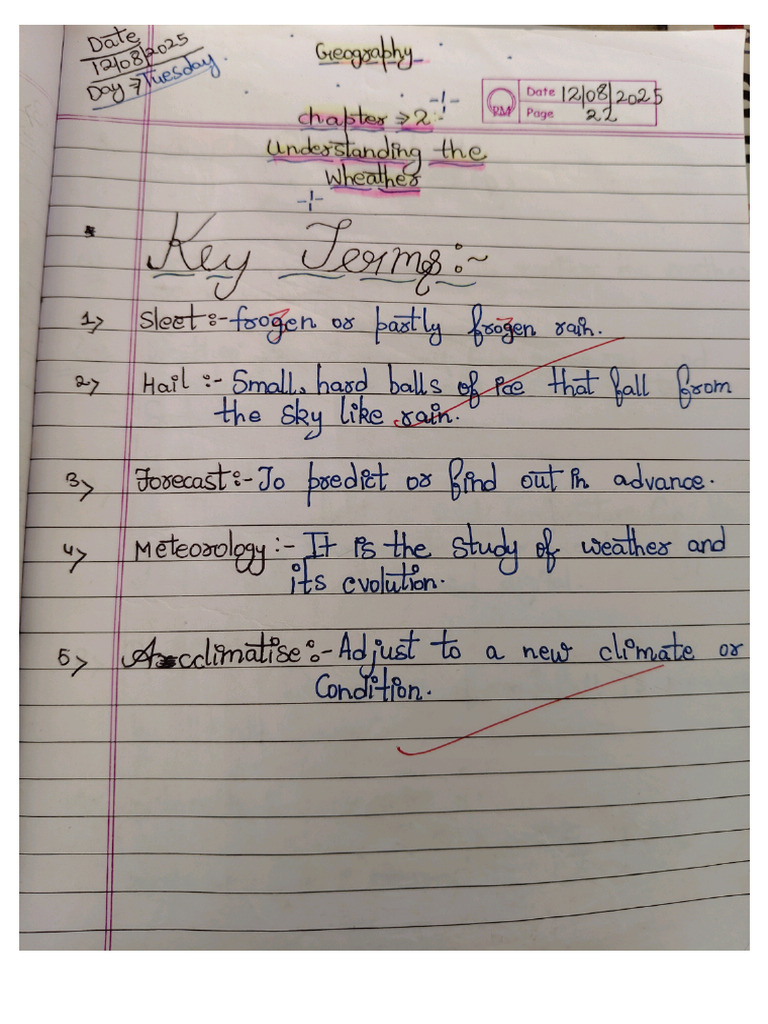 Date
12/08/2025
Day → Tuesday.
Geography
Date 12/08/2025
Page 22
PM
chapter → 2 :-
Understanding the
Wheather
Key Terms :~
1> Sleet :- frozen or partly frozen rain.
2> Hail :- Small, hard balls of ice that fall from
the sky like rain.
3> Forecast :- To predict or find out in advance.
4> Meteorology :- It is the study of weather and
its evolution.
5> Acclimatise :- Adjust to a new climate or
Condition.